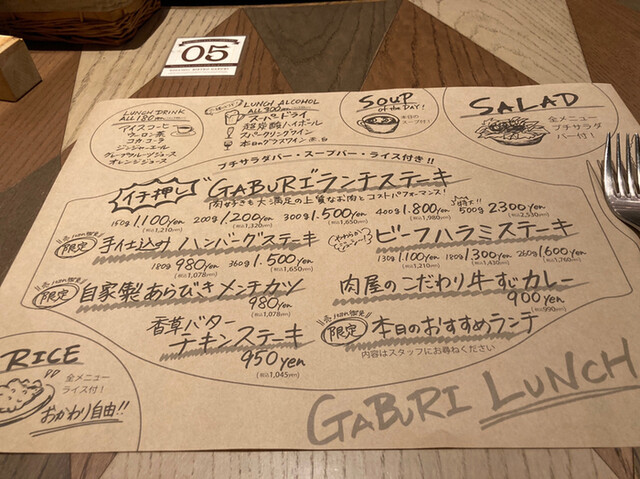 05
LUNCH DRINK
ALL 180yen
アイスコーヒー
ウーロン茶
コカコーラ
ジンジャーエール
グレープフルーツジュース
オレンジジュース
LUNCH ALCOHOL
ALL 300yen
スーパードライ
超炭酸ハイボール
スパークリングワイン
本日のグラスワイン 赤、白
SOUP
of the DAY!
本日の
スープ付!
SALAD
全メニュー
プチサラダ
バー付!
プチサラダバー・スープバー・ライス付き!!
イチ押し
"GABURI"ランチステーキ
肉好きも大満足の上質なお肉とコストパフォーマンス!
150g 1,100yen (税込1,210yen)
200g 1,200yen (税込1,320yen)
300g 1,500yen (税込1,650yen)
400g 1,800yen (税込1,980yen)
500g 2,300yen (税込2,530yen)
限定
手仕込みハンバーグステーキ
180g 980yen (税込1,078yen)
360g 1,500yen (税込1,650yen)
ビーフハラミステーキ
130g 1,100yen (税込1,210yen)
180g 1,300yen (税込1,430yen)
260g 1,600yen (税込1,760yen)
限定
自家製あらびきメンチカツ
980yen
(税込1,078yen)
肉屋のこだわり牛すじカレー
900yen
(税込990yen)
香草バター
チキンステーキ
950yen
(税込1,045yen)
限定
本日のおすすめランチ
内容はスタッフにお尋ねください
RICE
全メニュー
ライス付!
おかわり自由!!
GABURI LUNCH